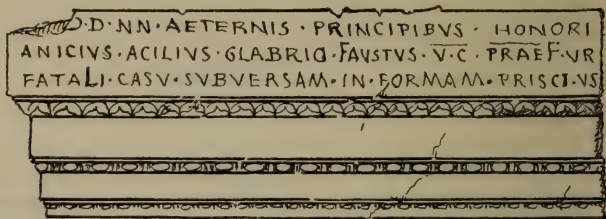 D·D·NN·AETERNIS·PRINCIPIBVS·HONORI
ANICIVS·ACILIVS·GLABRIO·FAUSTVS·V·C·PRAEF·VR
FATALI·CASV·SVBVERSAM·IN·FORMAM·PRISCI·VS